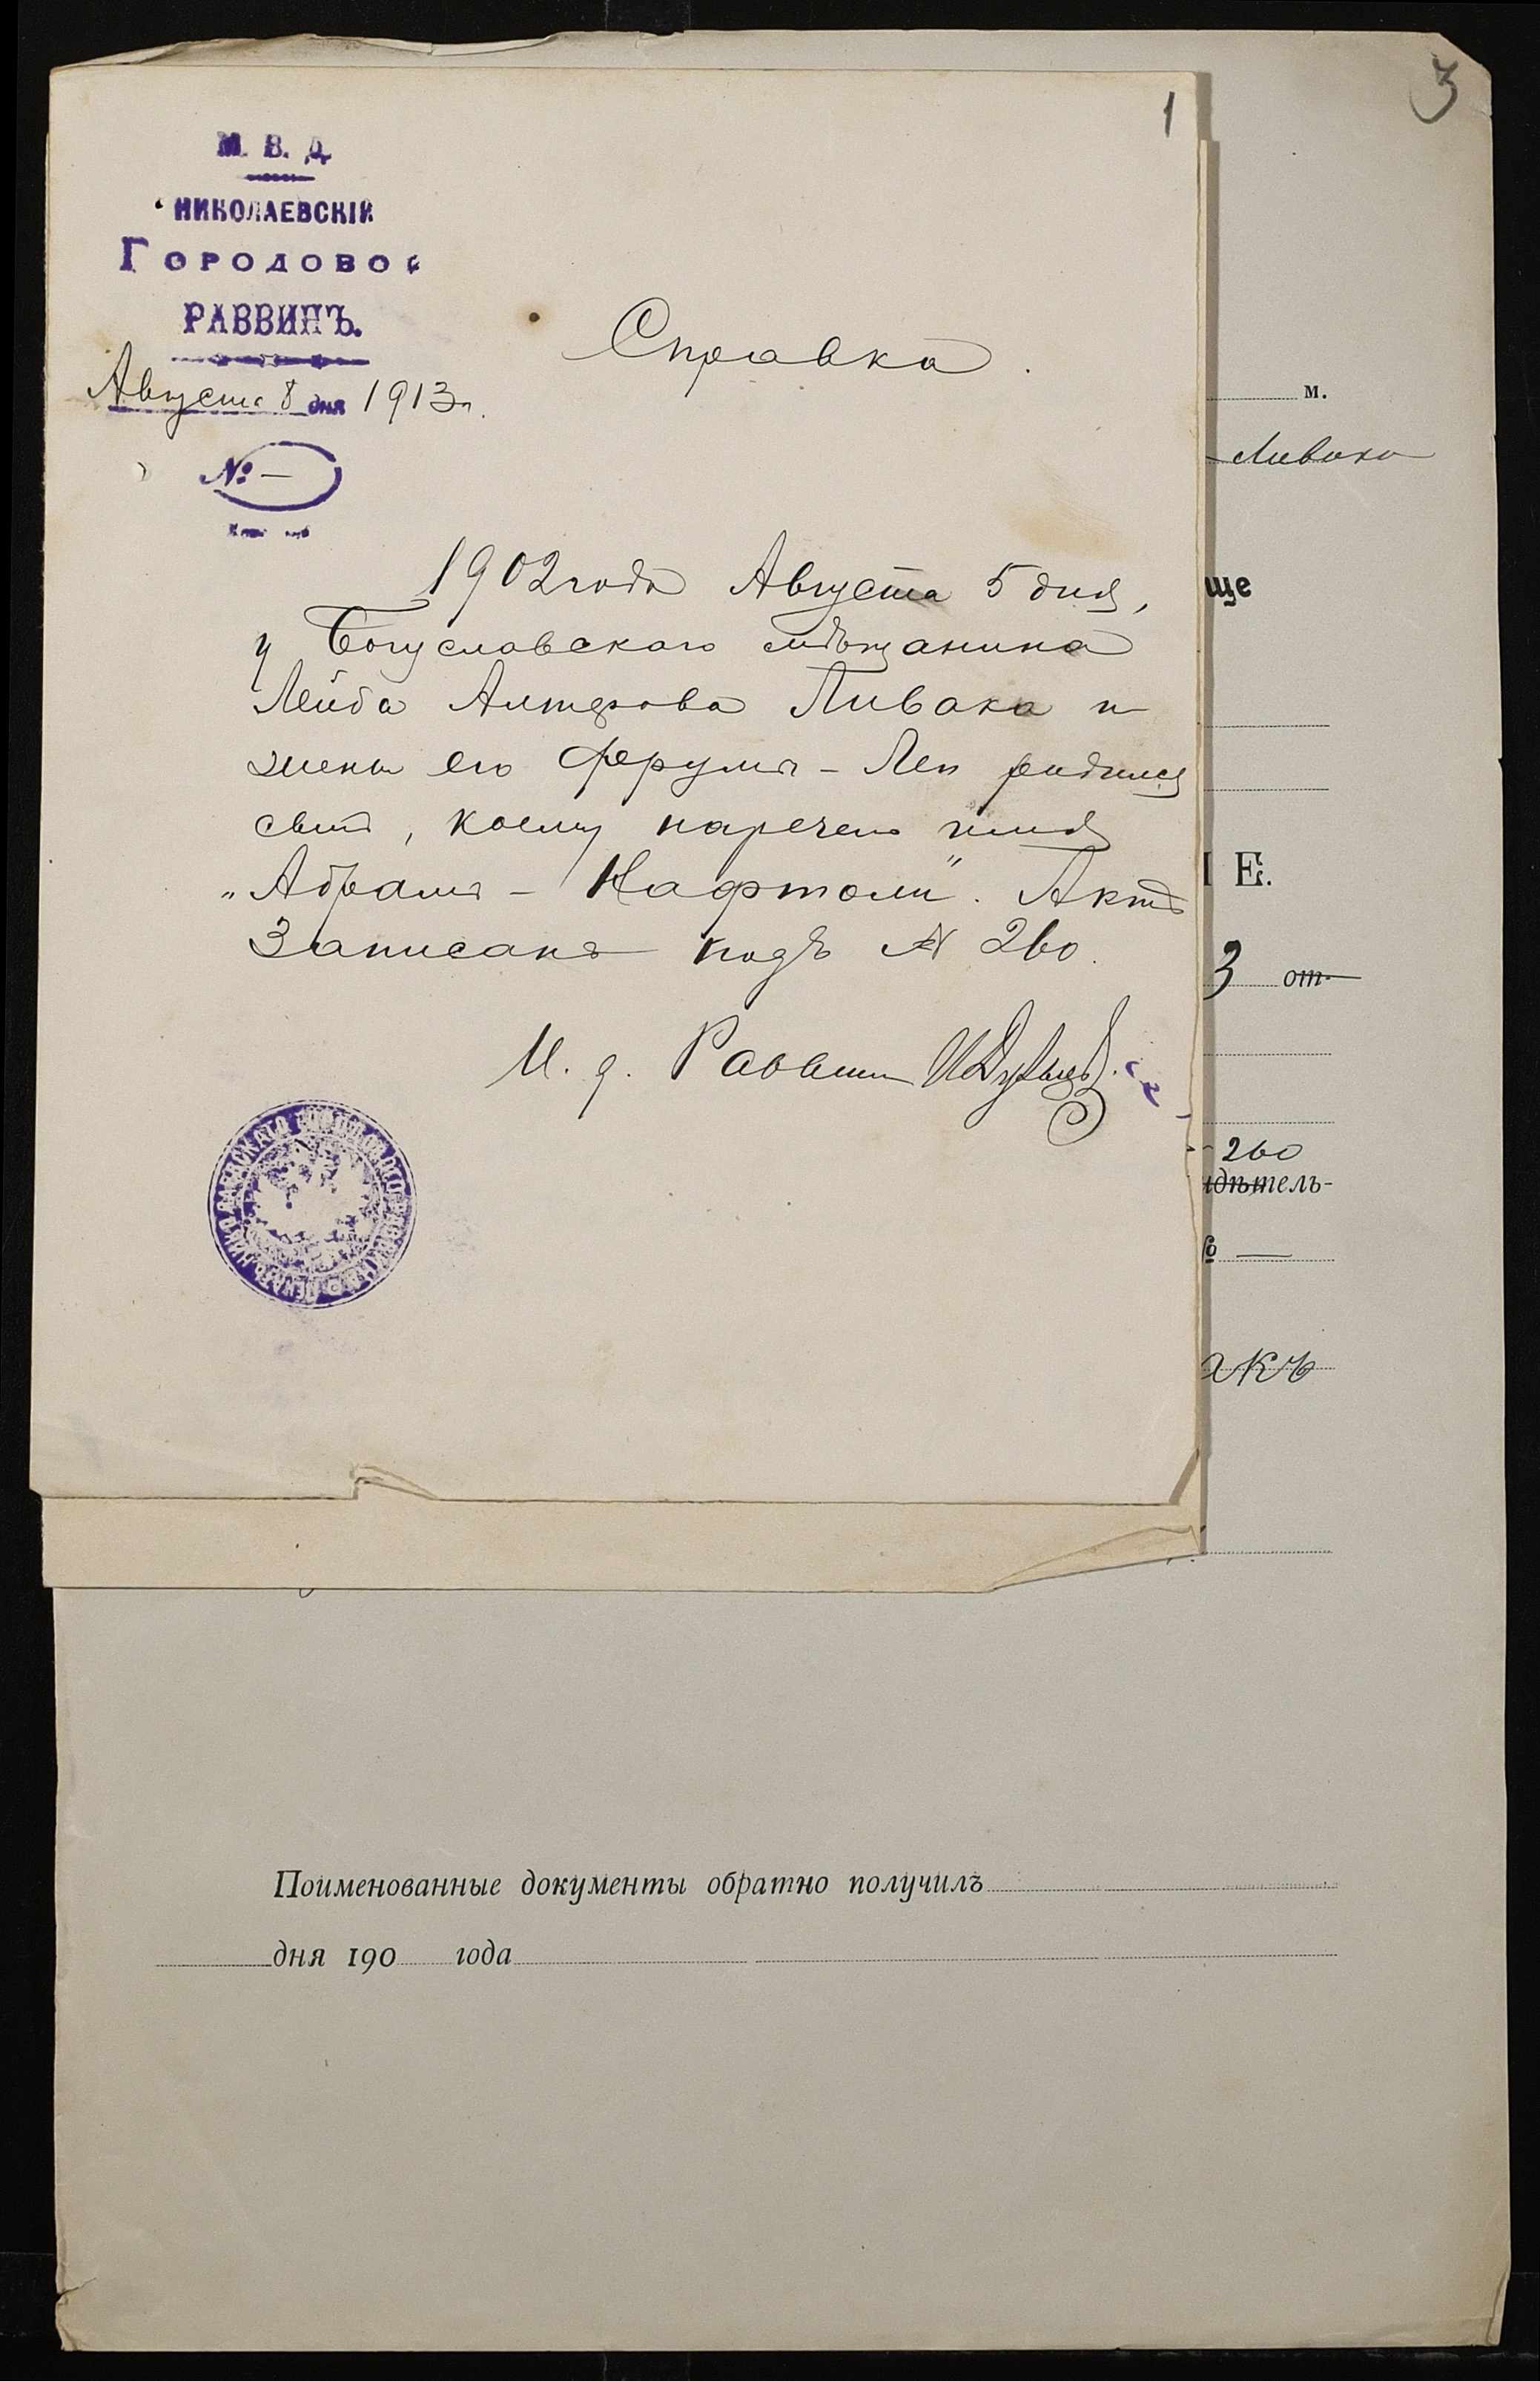 3
1
М. В. Д
НИКОЛАЕВСКІЙ
ГОРОДОВОЙ
РАВВИНЪ.
Августа 8 дня 1913 г.
№ —
Справка.
1902 года Августа 5 дня,
у Богуславскаго мѣщанина
Лейба Алтерова Пивака и
жены его Фрума - Леи родился
сынъ, коему наречено имя
„Абрамъ - Нафтоли". Актъ
Записанъ подъ № 260.
И. д. Раввин
м.
Пивака
ще
Е.
3 от
260
идѣтель-
№ —
акъ
Поименованные документы обратно получилъ
дня 190 года